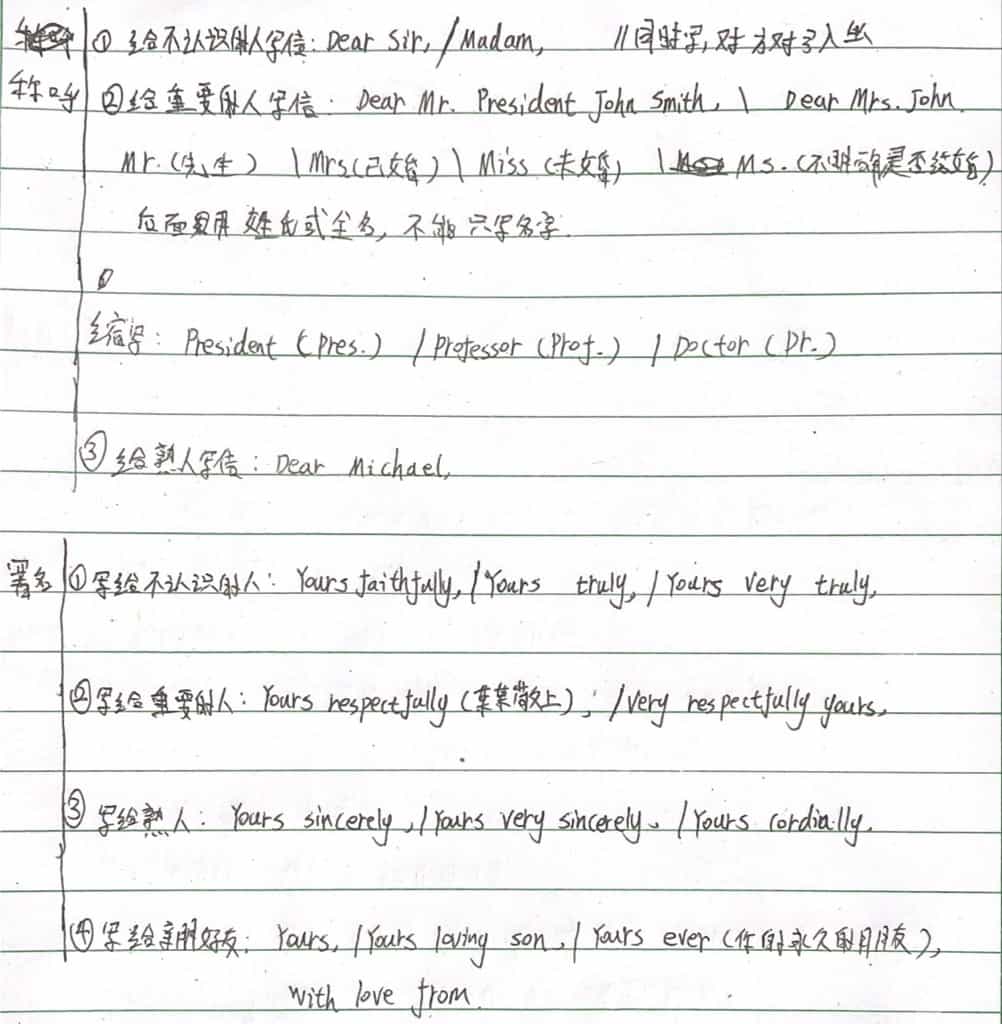 称呼 ① 给不认识的人写信: Dear Sir, / Madam, //同时写,对方对号入坐
②给重要的人写信: Dear Mr. President John Smith, \ Dear Mrs. John.
Mr. (先生) \ Mrs(已婚) \ Miss (未婚) \ Ms. (不明确是否结婚)
后面要用姓氏或全名, 不能只写名字.
缩写: President (Pres.) / Professor (Prof.) / Doctor (Dr.)
③ 给熟人写信: Dear Michael,
署名 ①写给不认识的人: Yours faithfully, / Yours truly, / Yours very truly,
②写给重要的人: Yours respectfully (某某敬上), / very respectfully yours,
③ 写给熟人: Yours sincerely, / Yours very sincerely, / Yours cordially.
④写给亲朋好友: Yours, / Yours loving son, / Yours ever (你的永久的朋友),
with love from.